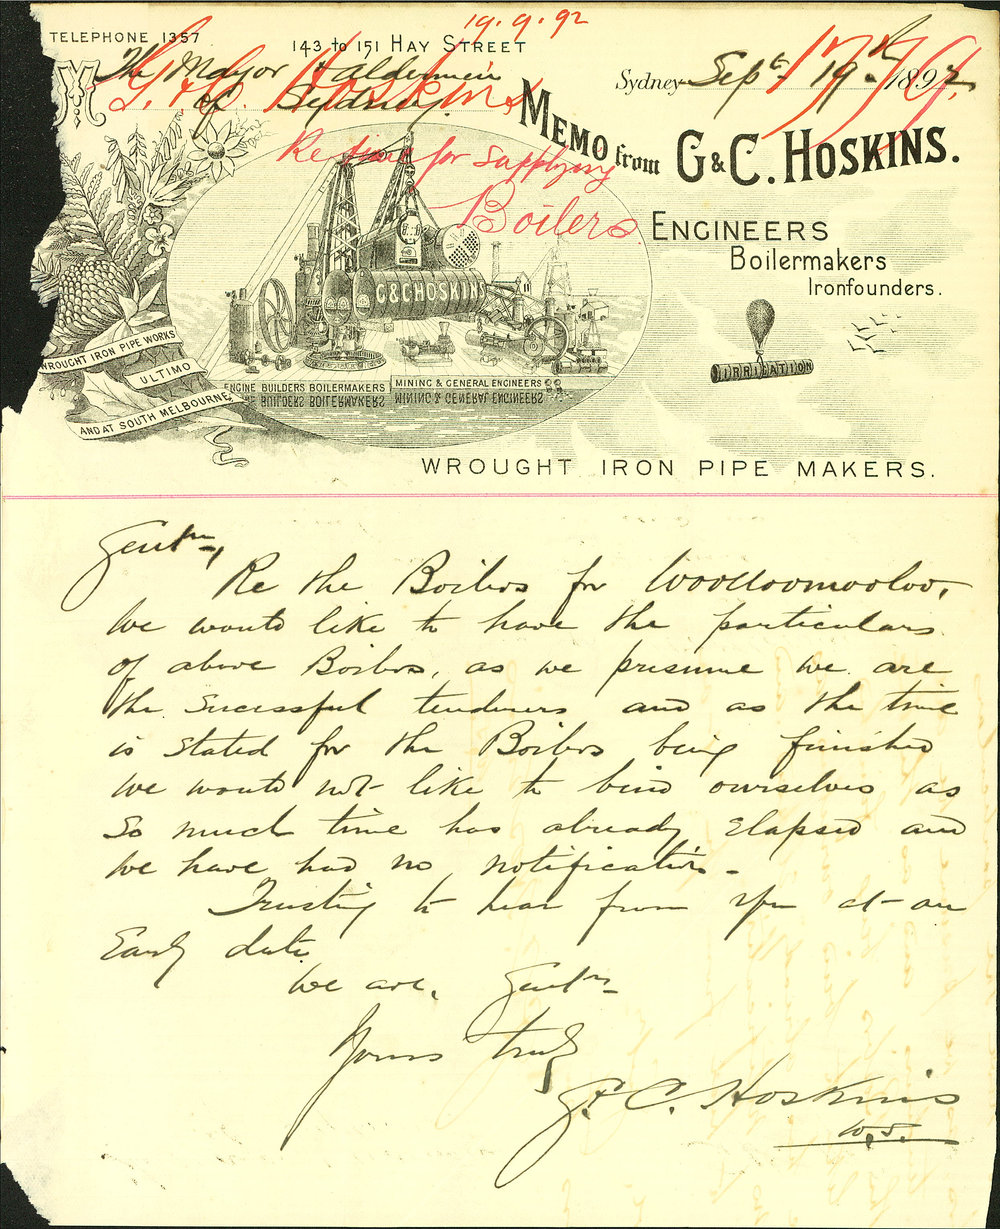 19.9.92
TELEPHONE 1357
143 to 151 HAY STREET
The Mayor & Aldermen
of Sydney.
G. & C. Hoskins
Sydney Sept. 19th 1892
M
MEMO from G & C. HOSKINS.
Re time for supplying
Boilers.
ENGINEERS
Boilermakers
Ironfounders.
G & C HOSKINS
IRRIGATION
WROUGHT IRON PIPE WORKS
ULTIMO
AND AT SOUTH MELBOURNE
ENGINE BUILDERS BOILERMAKERS
MINING & GENERAL ENGINEERS
ENGINE BUILDERS BOILERMAKERS
MINING & GENERAL ENGINEERS
WROUGHT IRON PIPE MAKERS.
Gentm,
Re the Boilers for Woolloomooloo,
We would like to have the particulars
of above Boilers, as we presume we are
the Sucessful tenderers and as the time
is stated for the Boilers being finished
we would not like to bind ourselves as
so much time has already Elapsed and
we have had no notification.
Trusting to hear from you at an
Early date
We are, Gentm
Yours truly
G. & C. Hoskins